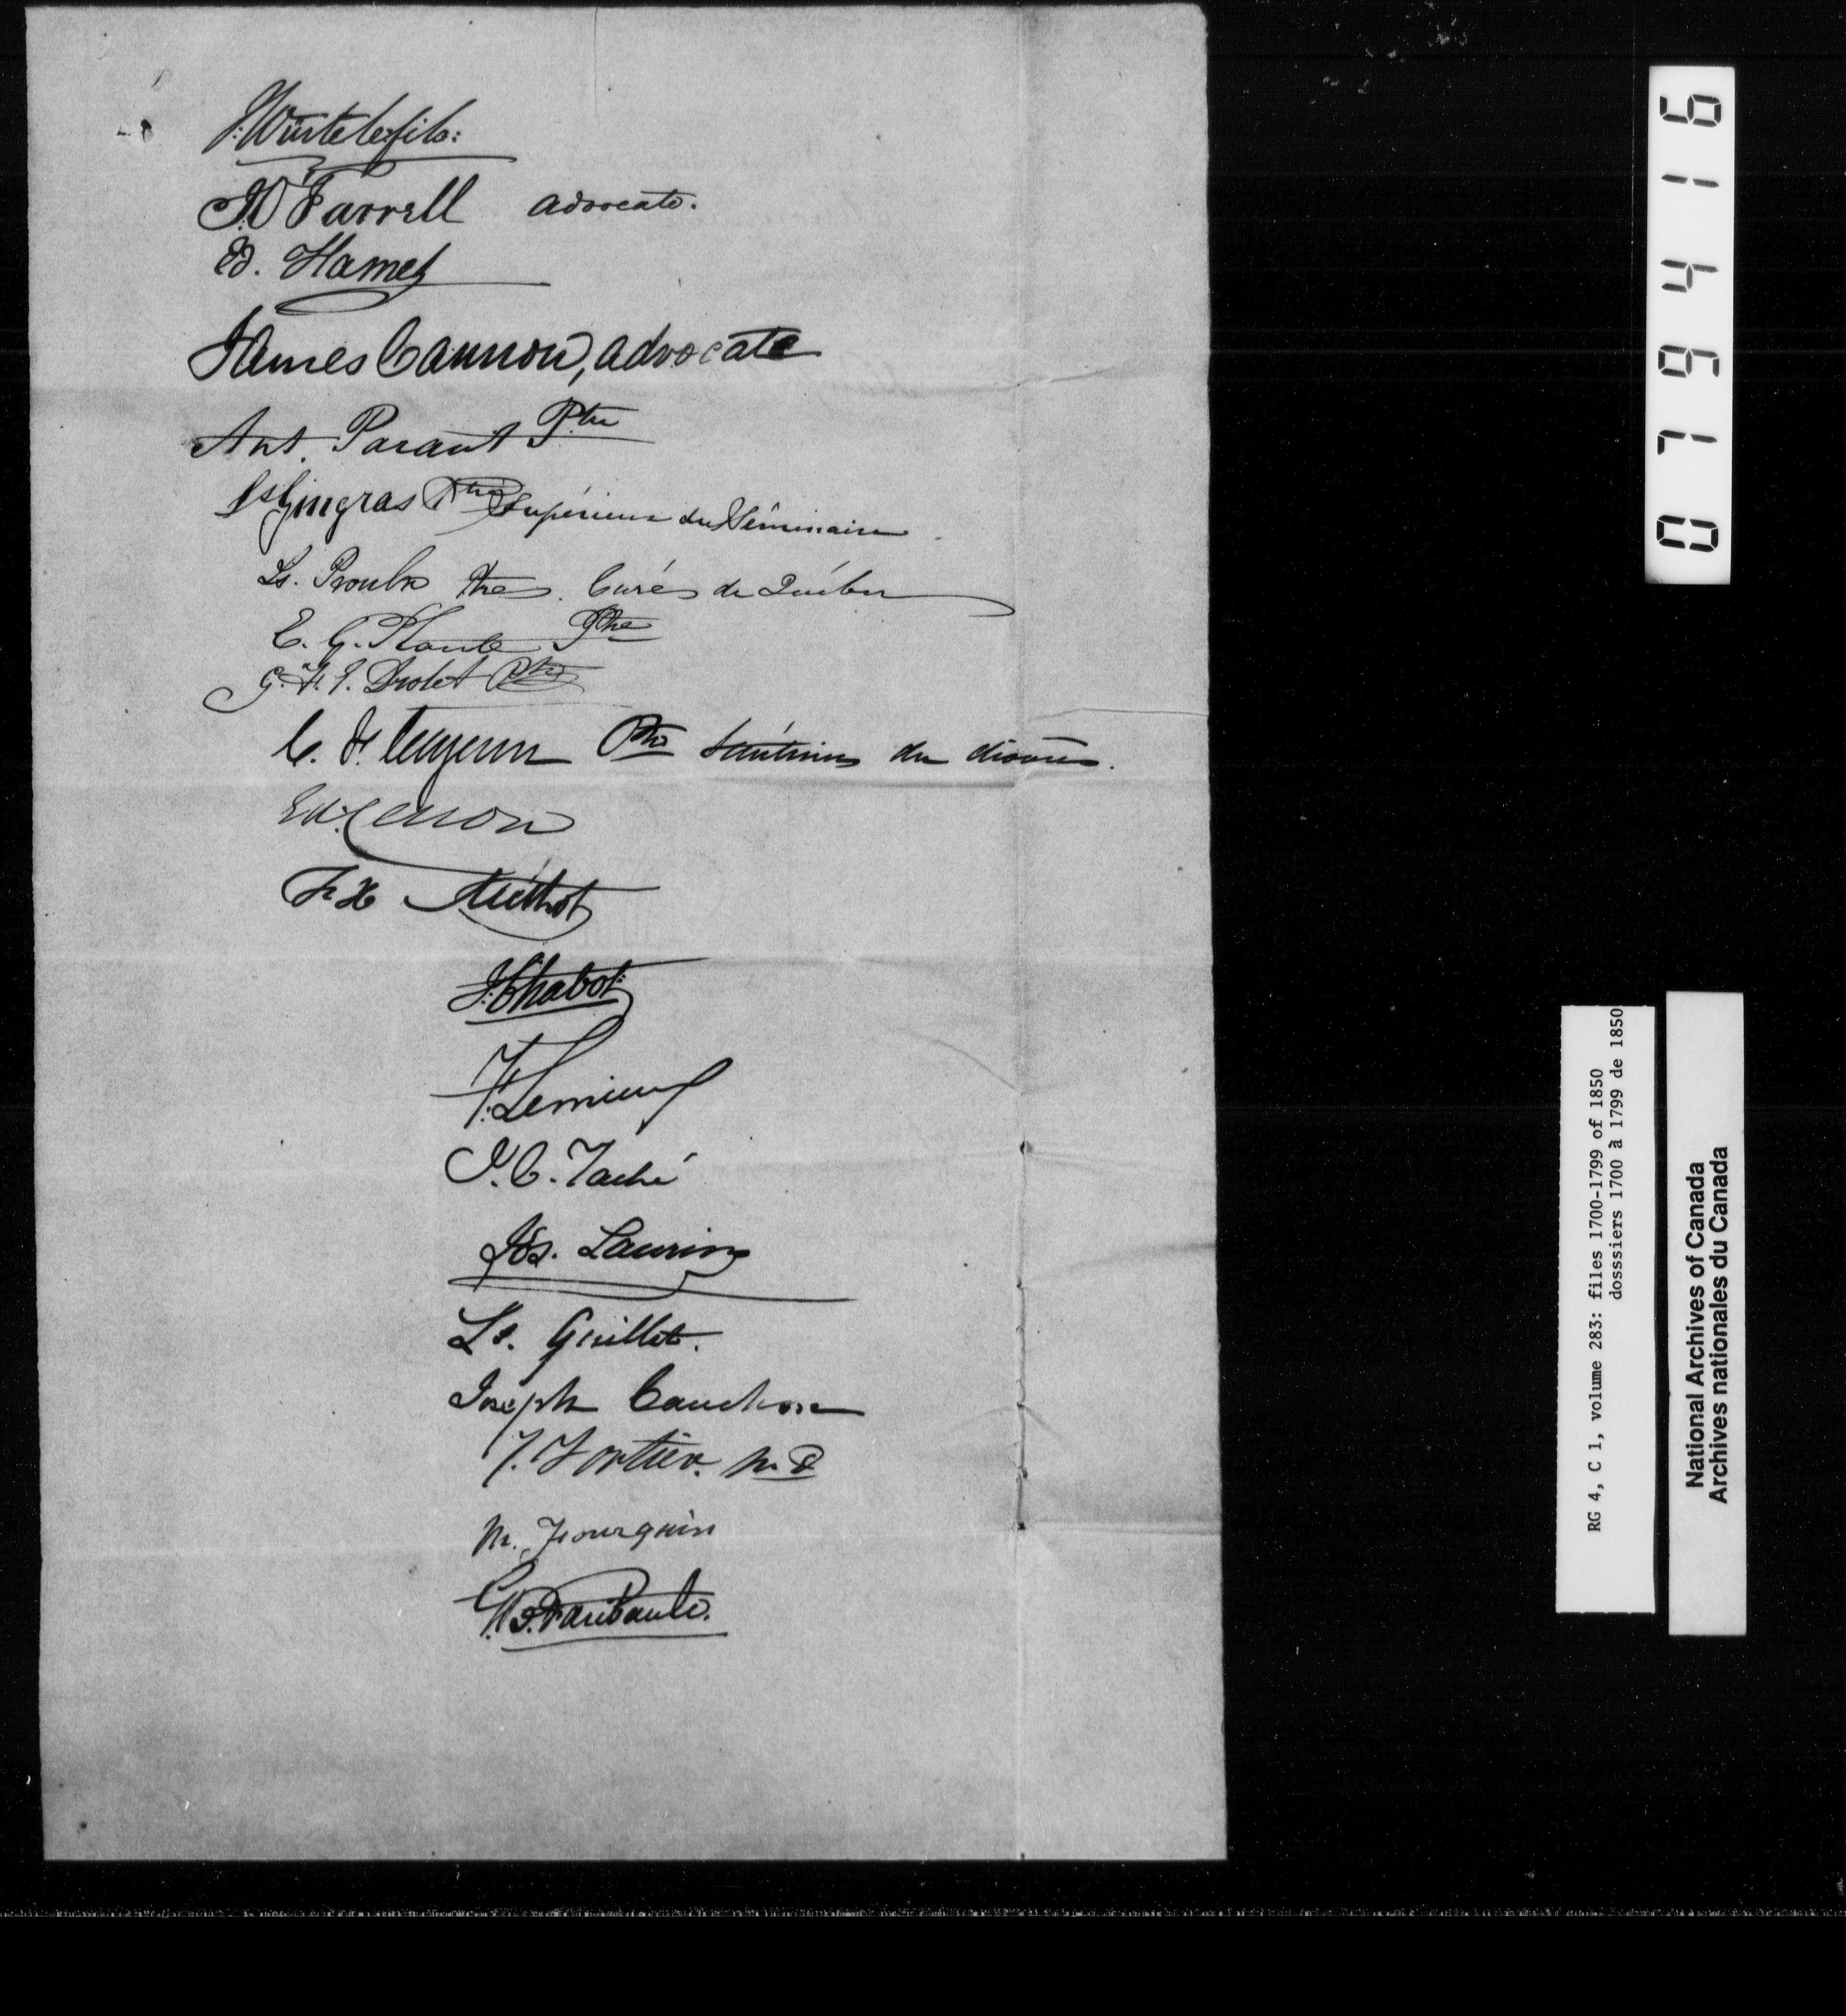 J: Würtele fils:
J. O'Farrell advocate.
Ed. Hamel
James Cannon, advocate
Ant. Parant Ptre
Ls Gingras Ptre Supérieur du Séminaire
Ls. Proulx Ptre. Curé de Québec
E. G. Plante Ptre
G. F. E. Drolet Ptre
C. F. Cazeau Ptre du diocèse.
F. X. Méthot
J: Chabot:
F: Lemieux
J. C. Taché
Jos. Laurin
Ls. Guillet.
Joseph Cauchon
T. Fortier. M. D
M. Fourquin
G. B. Faribault.
079416
RG 4, C 1, volume 283: files 1700-1799 of 1850
dosssiers 1700 à 1799 de 1850
National Archives of Canada
Archives nationales du Canada